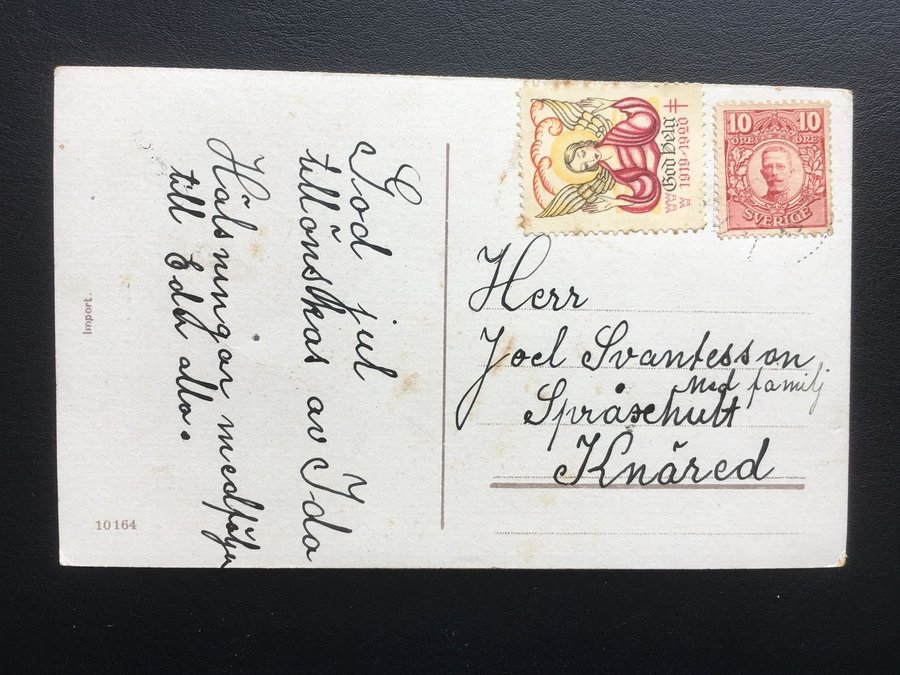 God jul
tillönskas av Ida
Hälsningar medföljer
till Eder alla.
Import.
10164
God Helg
1919-1920
10 10
ÖRE ÖRE
SVERIGE
Herr
Joel Svantesson
Med familj
Språxhult
Knäred